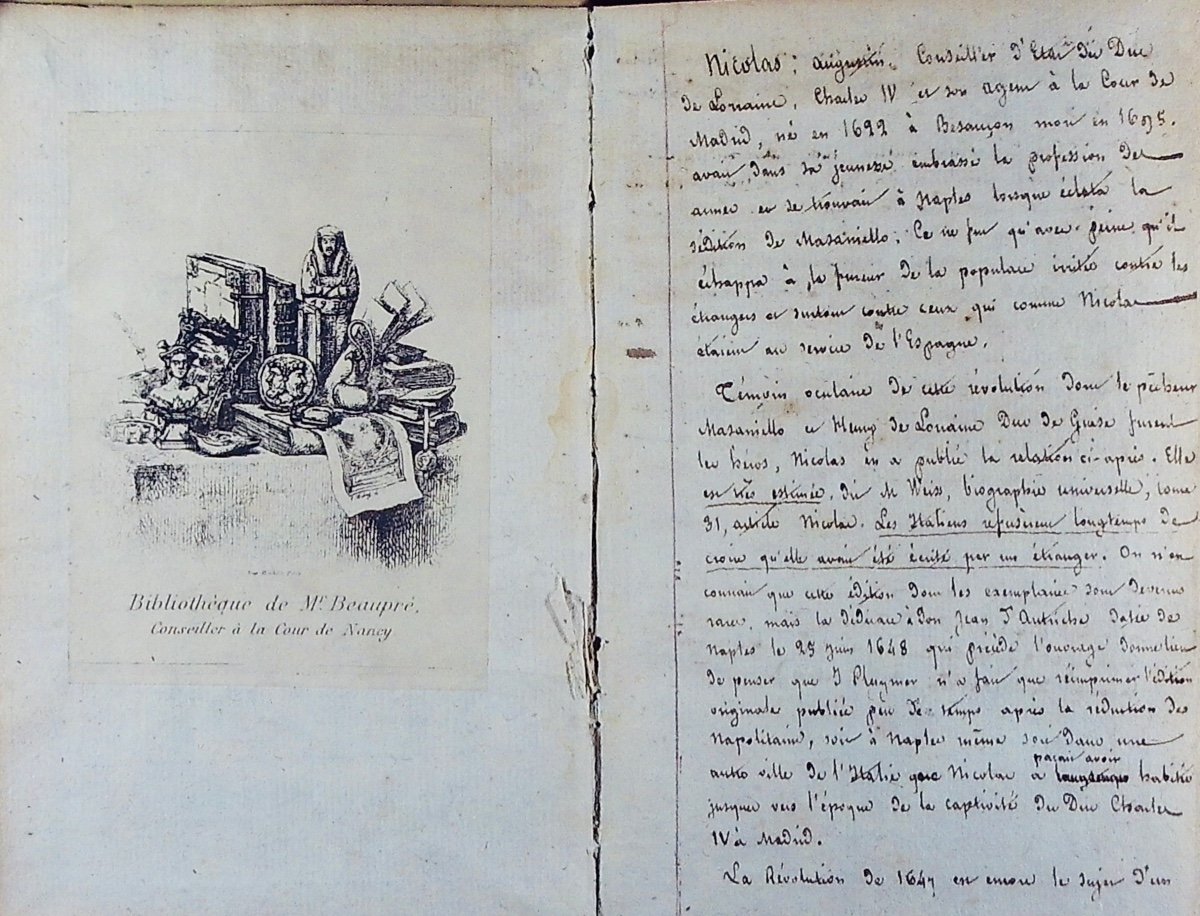 Bibliothèque de Mr Beaupré,
Conseiller à la Cour de Nancy
Nicolas; augustin. Conseiller d'Etat du Duc
de Lorraine, Charles IV et son agent à la Cour de
Madrid, né en 1622 à Besançon mort en 1695.
avait dans sa jeunesse embrassé la profession des
armes et se trouvait à Naples lorsque éclata la
sédition de Masaniello; Ce ne fut qu'avec peine qu'il
échappa à la fureur de la populace irritée contre les
étrangers et surtout contre ceux qui comme Nicolas
étaient au service de l'Espagne.
Témoin oculaire de cette révolution dont le pêcheur
Masaniello et Henry de Lorraine Duc de Guise furent
les héros, Nicolas en a publié la relation ci-après. Elle
est très estimée, dit M Weiss, biographie universelle, tome
31, article Nicolas. Les Italiens refusèrent longtemps de
croire qu'elle avait été écrite par un étranger. On n'en
connait que cette édition dont les exemplaires sont devenus
rares, mais la dédicace à Don Jean d'Autriche datée de
Naples le 25 juin 1648 qui précède l'ouvrage donne lieu
de penser que J Pluymer n'a fait que réimprimer l'édition
originale publiée peu de temps après la réduction des
Napolitains, soit à Naples même soit dans une
autre ville de l'Italie que Nicolas a longtemps habitée
parait avoir
jusques vers l'époque de la captivité du Duc Charles
IV à Madrid.
La Révolution de 1647 est encore le sujet d'un